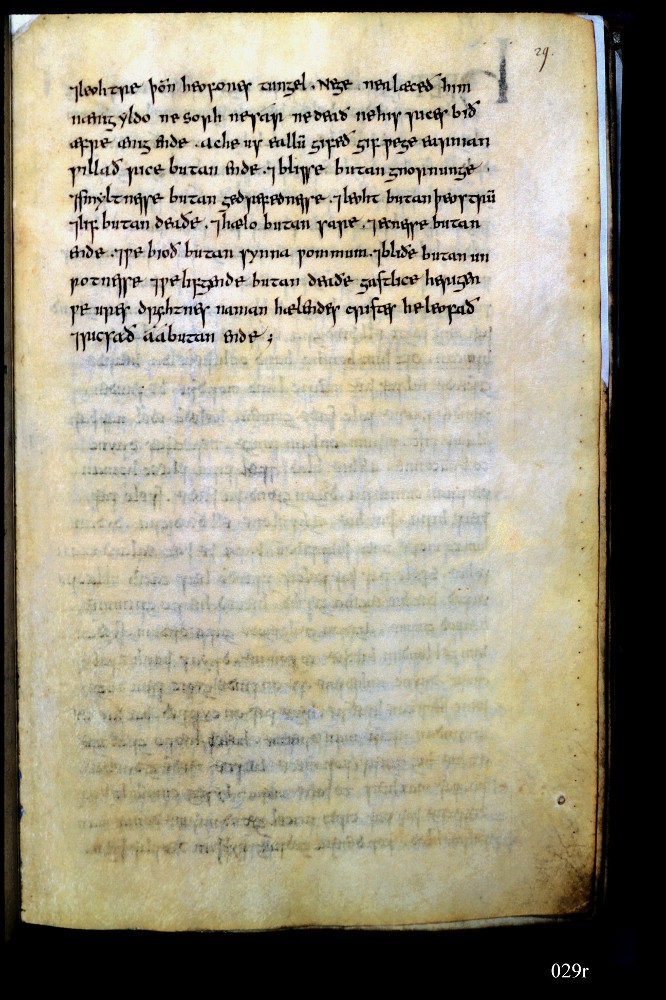 29.
⁊leohtre þon̄ heofones tungel. Nege nealæceð him
nænig yldo ne sorh ne sár ne deað ne his rices bið
æfre ænig ende. ac he us eallū gifeð gif we ge earnian
willað rice butan ende. ⁊blisse butan gnornunge
⁊smyltnesse butan gedrefednesse. ⁊leoht butan þeostrū
⁊lif butan deaðe. ⁊hælo butan sare. ⁊ecnesse butan
ende. ⁊we bioð butan synna wommum. ⁊bliðe butan un
rotnesse ⁊we lifgende butan deaðe gastlice herigen
we ures dryhtnes naman hælendes cristes he leofað
⁊ricsað áá butan ende ;
029r